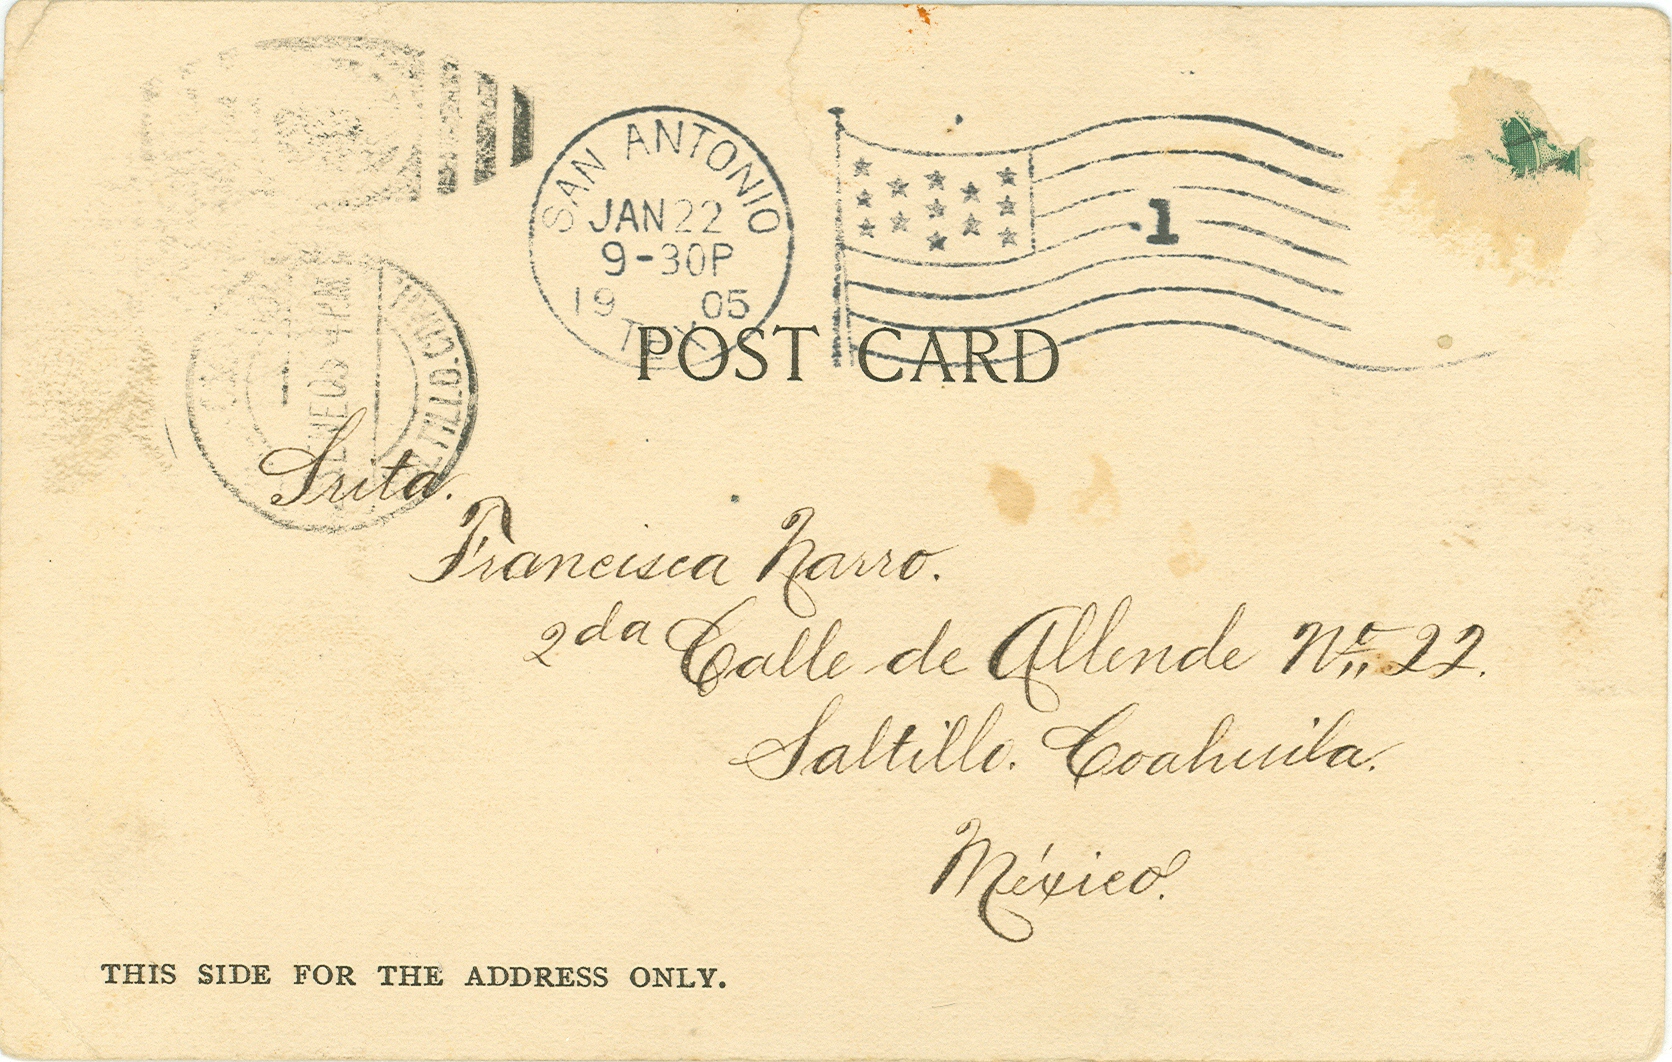 SAN ANTONIO
JAN 22
9-30P
19 05
TEX.
1
POST CARD
Srita.
Francisca Narro.
2da Calle de Allende No. 22.
Saltillo. Coahuila.
México.
THIS SIDE FOR THE ADDRESS ONLY.